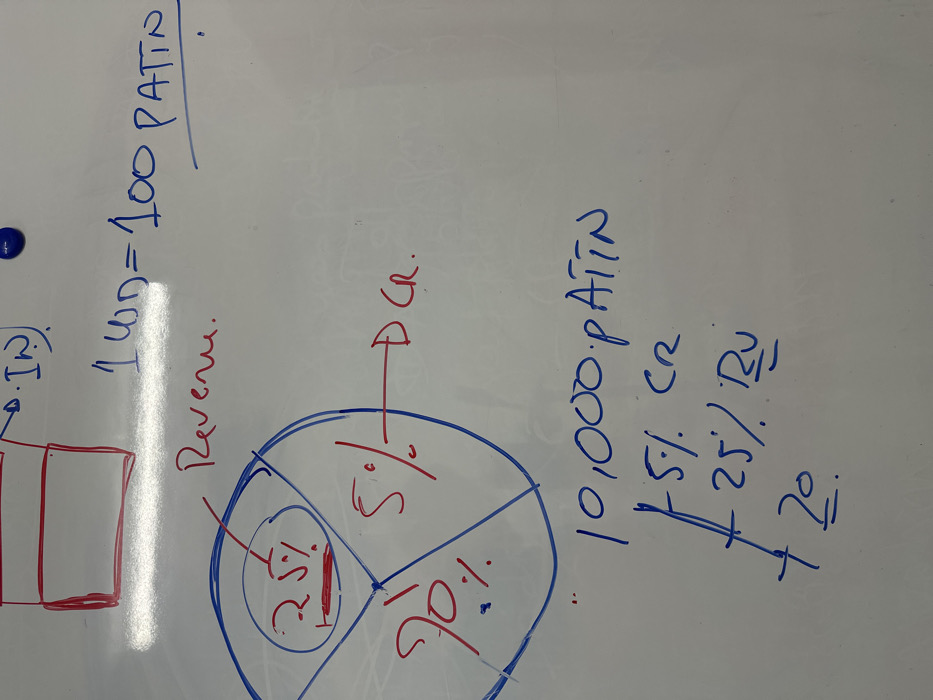 IN).
1 USD = 100 PATIN
Revenu.
25%
5%
CR.
70%
10,000 PATIN
5% CR
25% RU
70.